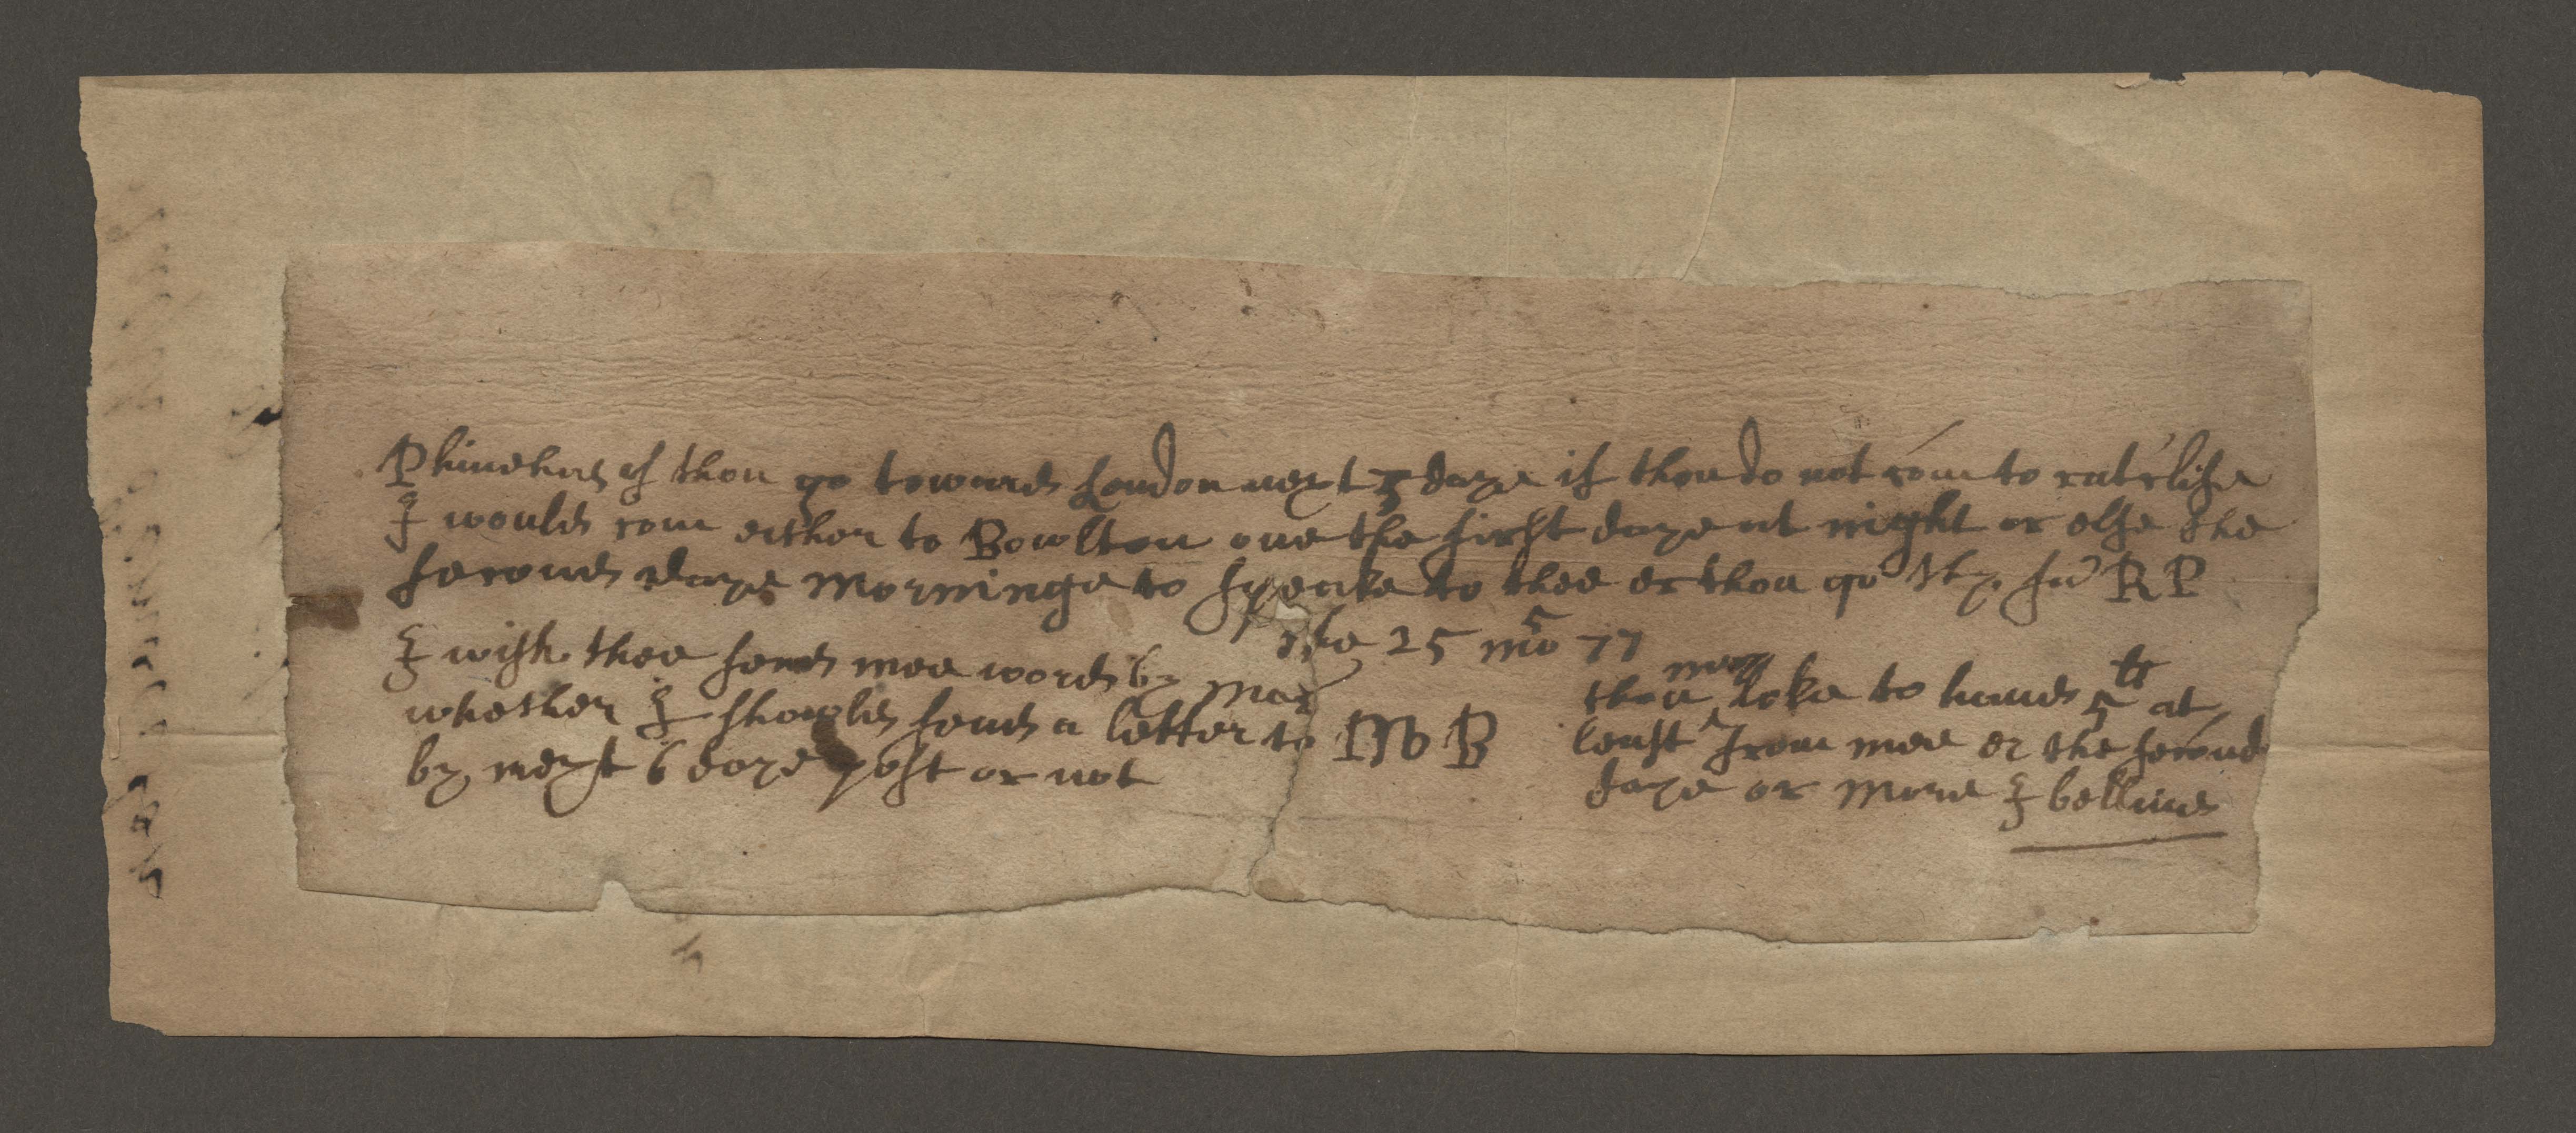 Phinehas if thou go toward London next 3 daye if thou do not com to ratclife
I would com either to Bowlton one the first daye at night or else the
second daye Morninge to speake to thee er thou go thy fd R P
the 25 5 mo 77
I wish thee send mee word by
whether I should send a letter to B
by next 6 daye post or not
thou may loke to haue 5 lr at
least from mee er the second
daye or more I belliue